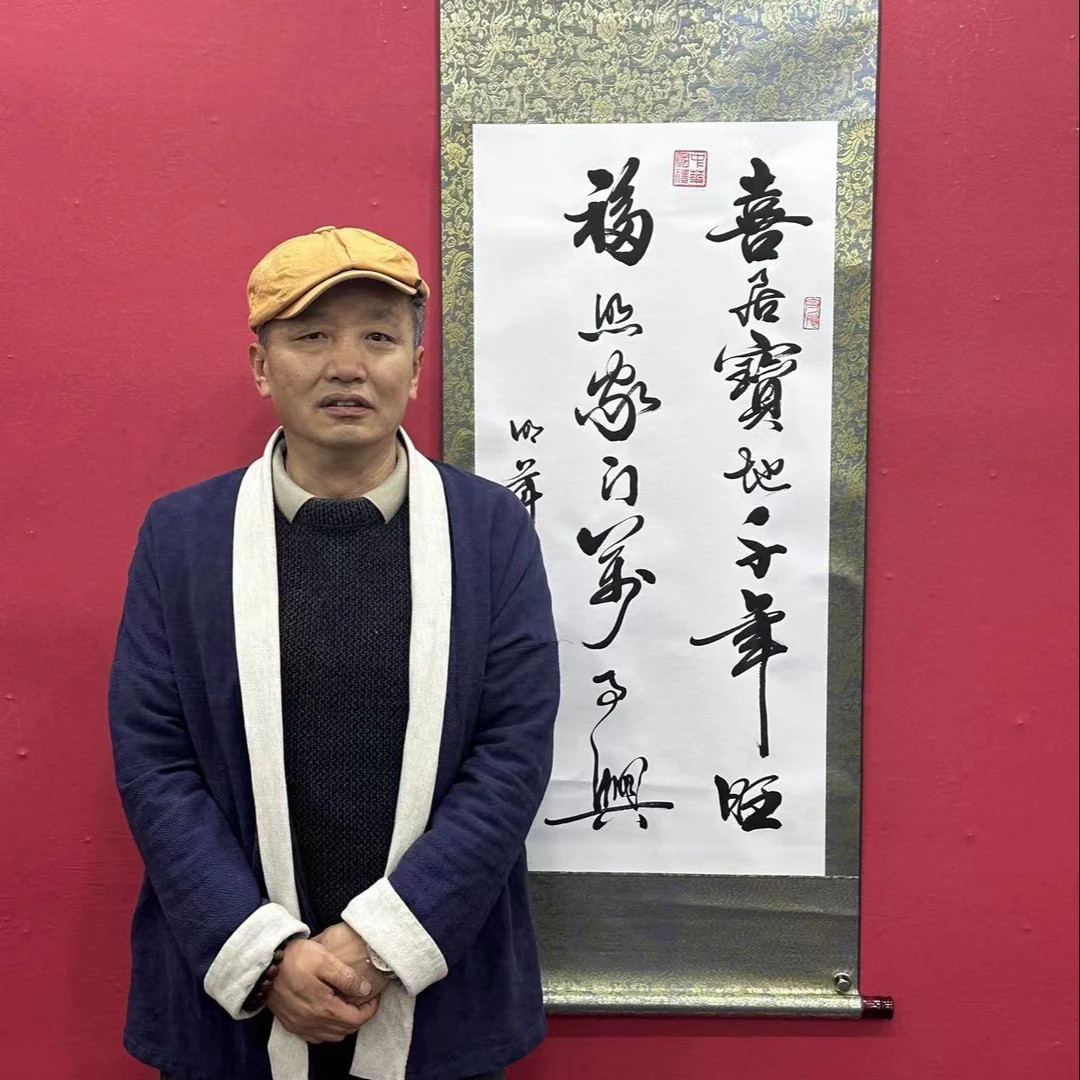 喜居寶地千年旺
福照家门萬事興
明華